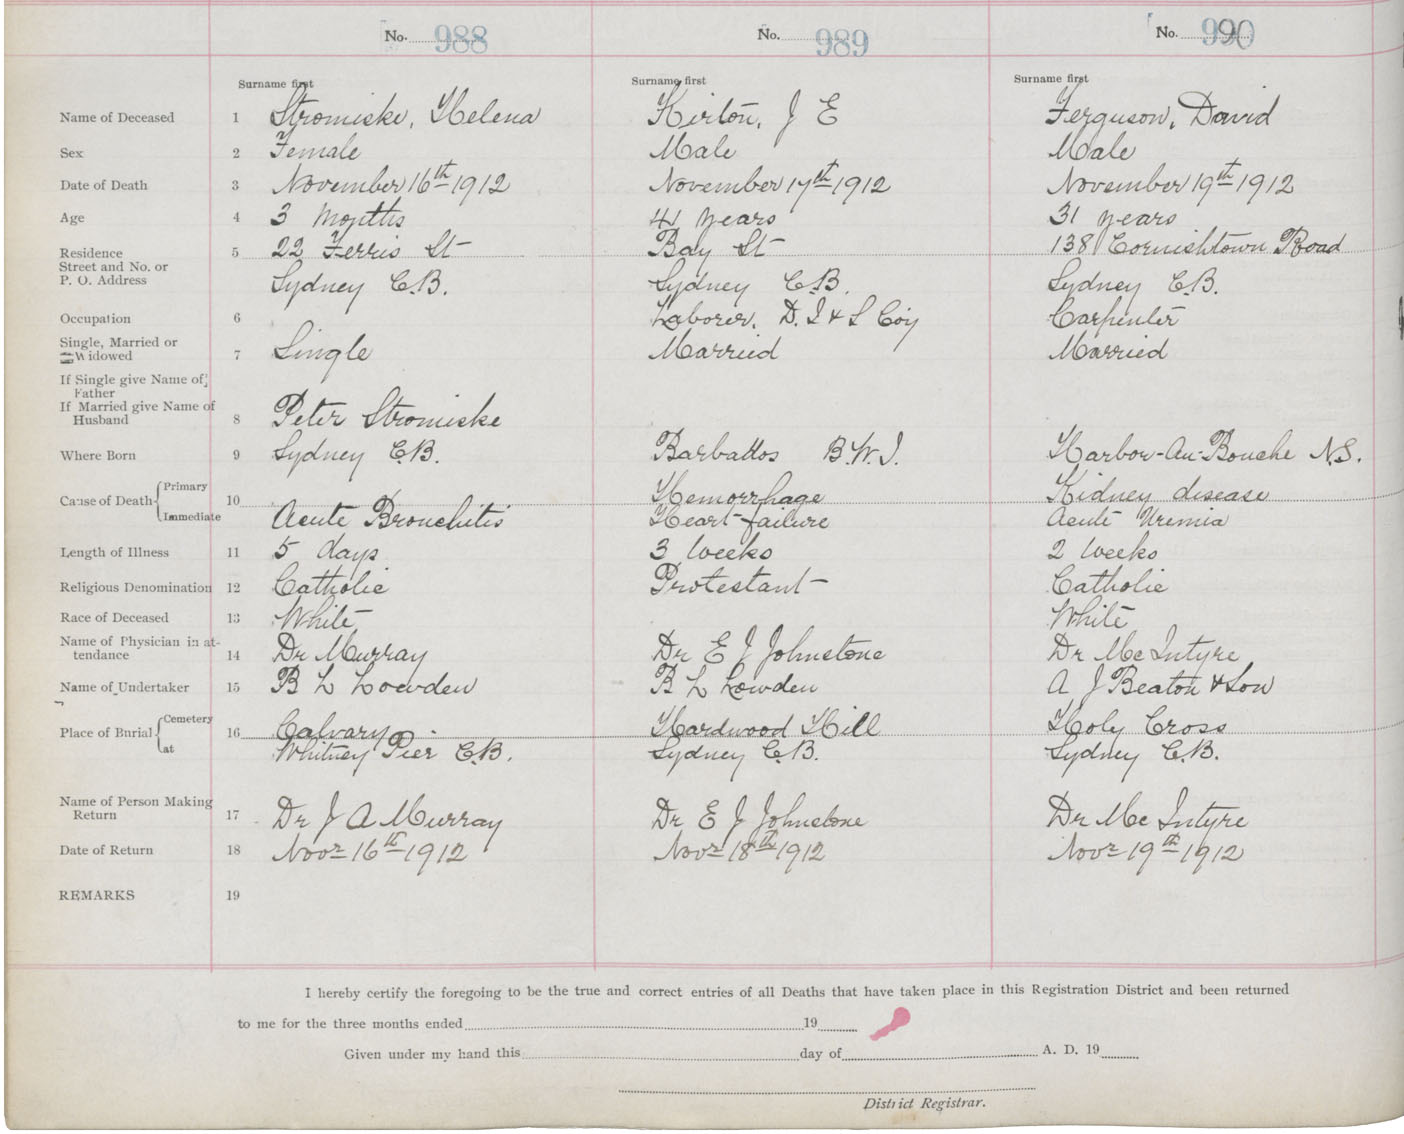 No. 988 No. 989 No. 990
Surname first Surname first Surname first
Name of Deceased 1 Stromiske, Helena Kirton, J E Ferguson, David
Sex 2 Female Male Male
Date of Death 3 November 16th 1912 November 17th 1912 November 19th 1912
Age 4 3 Months 41 years 31 years
Residence 5 22 Ferris St Bay St 138 Cornishtown Road
Street and No. or
P. O. Address Sydney C.B. Sydney C.B. Sydney C.B.
Occupation 6 Laborer. D. I & S Coy Carpenter
Single, Married or
Widowed 7 Single Married Married
If Single give Name of
Father
If Married give Name of
Husband 8 Peter Stromiske
Where Born 9 Sydney C.B. Barbattos B.W.I. Harbor-Au-Bouche N.S.
Cause of Death Primary 10 Hemorrhage Kidney disease
Immediate Acute Bronchitis Heart-failure Acute Uremia
Length of Illness 11 5 days 3 Weeks 2 Weeks
Religious Denomination 12 Catholic Protestant Catholic
Race of Deceased 13 White White
Name of Physician in at-
tendance 14 Dr Murray Dr E J Johnstone Dr Mc Intyre
Name of Undertaker 15 B L Lowden B L Lowden A J Beaton & Son
Place of Burial Cemetery 16 Calvary Hardwood Hill Holy Cross
at Whitney Pier C.B. Sydney C.B. Sydney C.B.
Name of Person Making
Return 17 Dr J A Murray Dr E J Johnstone Dr Mc Intyre
Date of Return 18 Novr 16th 1912 Novr 18th 1912 Novr 19th 1912
REMARKS 19
I hereby certify the foregoing to be the true and correct entries of all Deaths that have taken place in this Registration District and been returned
to me for the three months ended 19
Given under my hand this day of A. D. 19
District Registrar.